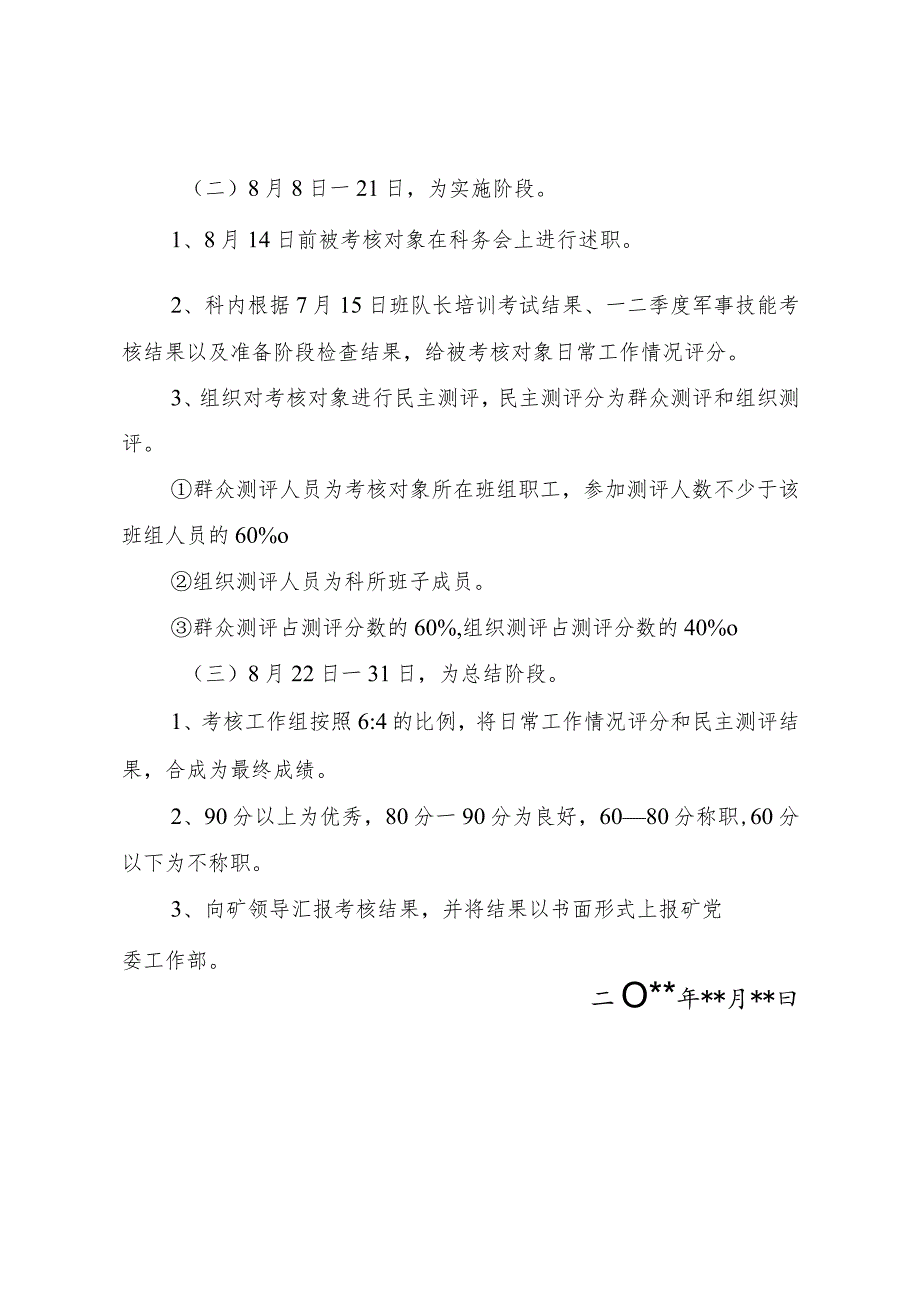 （二）8月8日一21日，为实施阶段。
1、8月14日前被考核对象在科务会上进行述职。
2、科内根据7月15日班队长培训考试结果、一二季度军事技能考
核结果以及准备阶段检查结果，给被考核对象日常工作情况评分。
3、组织对考核对象进行民主测评，民主测评分为群众测评和组织测
评。
①群众测评人员为考核对象所在班组职工，参加测评人数不少于该
班组人员的60%o
②组织测评人员为科所班子成员。
③群众测评占测评分数的60%,组织测评占测评分数的40%o
（三）8月22日一31日，为总结阶段。
1、考核工作组按照6:4的比例，将日常工作情况评分和民主测评结
果，合成为最终成绩。
2、90分以上为优秀，80分一90分为良好，60—80分称职,60分
以下为不称职。
3、向矿领导汇报考核结果，并将结果以书面形式上报矿党
委工作部。
二O**年**月**曰